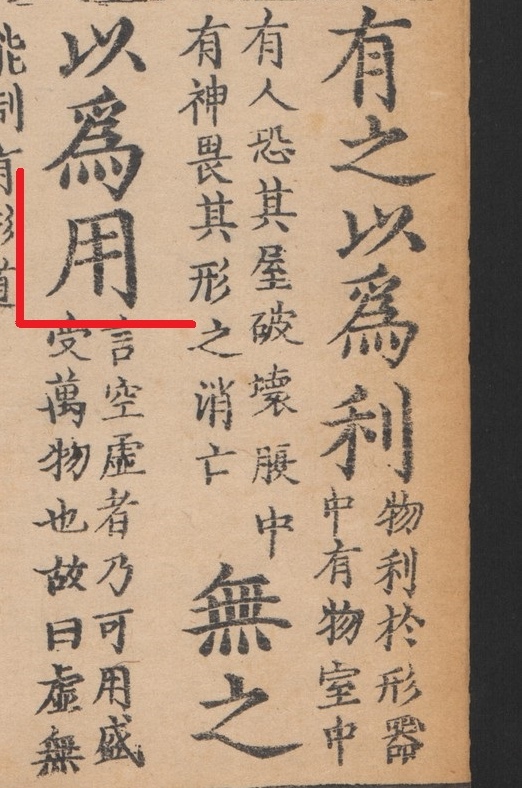 有之以爲利
物利於形器
中有物室中
有人恐其屋破壞腹中
有神畏其形之消亡
無之
以爲用
言空虛者乃可用盛
受萬物也故曰虛無
能制有形道